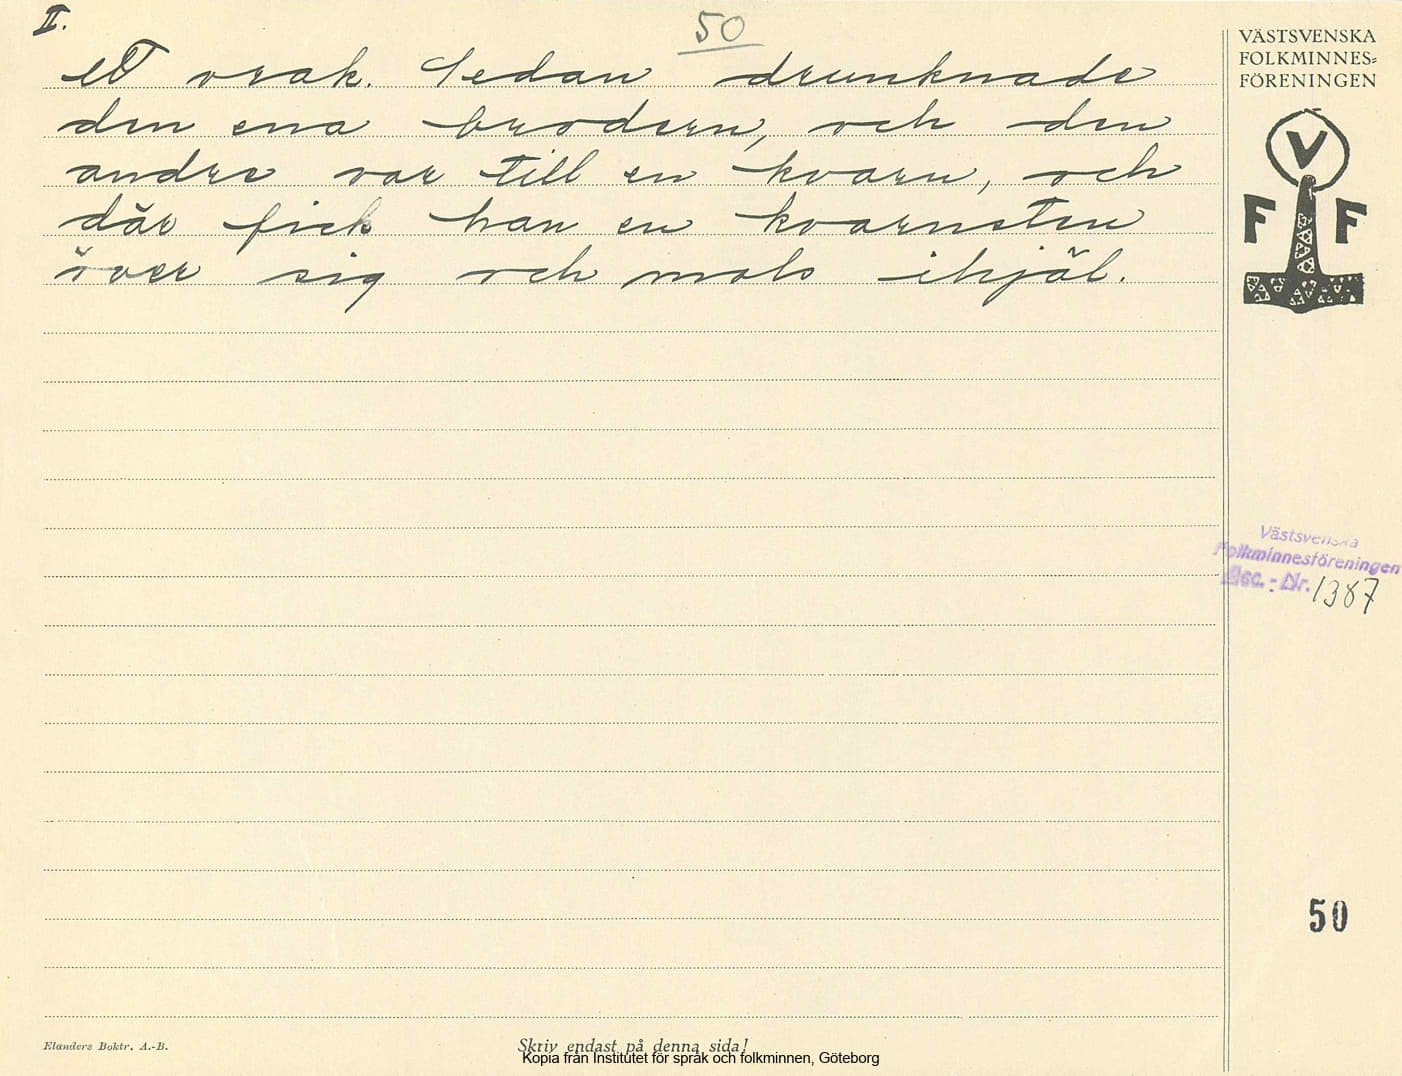 II.
50
ett vrak. Sedan drunknade
den ena brodern, och den
andre var till en kvarn, och
där fick han en kvarnsten
över sig och mols ihjäl.
VÄSTSVENSKA
FOLKMINNES=
FÖRENINGEN
V
F F
Västsvenska
Folkminnesföreningen
Acc. - Nr. 1387
50
Elanders Boktr. A.-B.
Skriv endast på denna sida!
Kopia från Institutet för språk och folkminnen, Göteborg